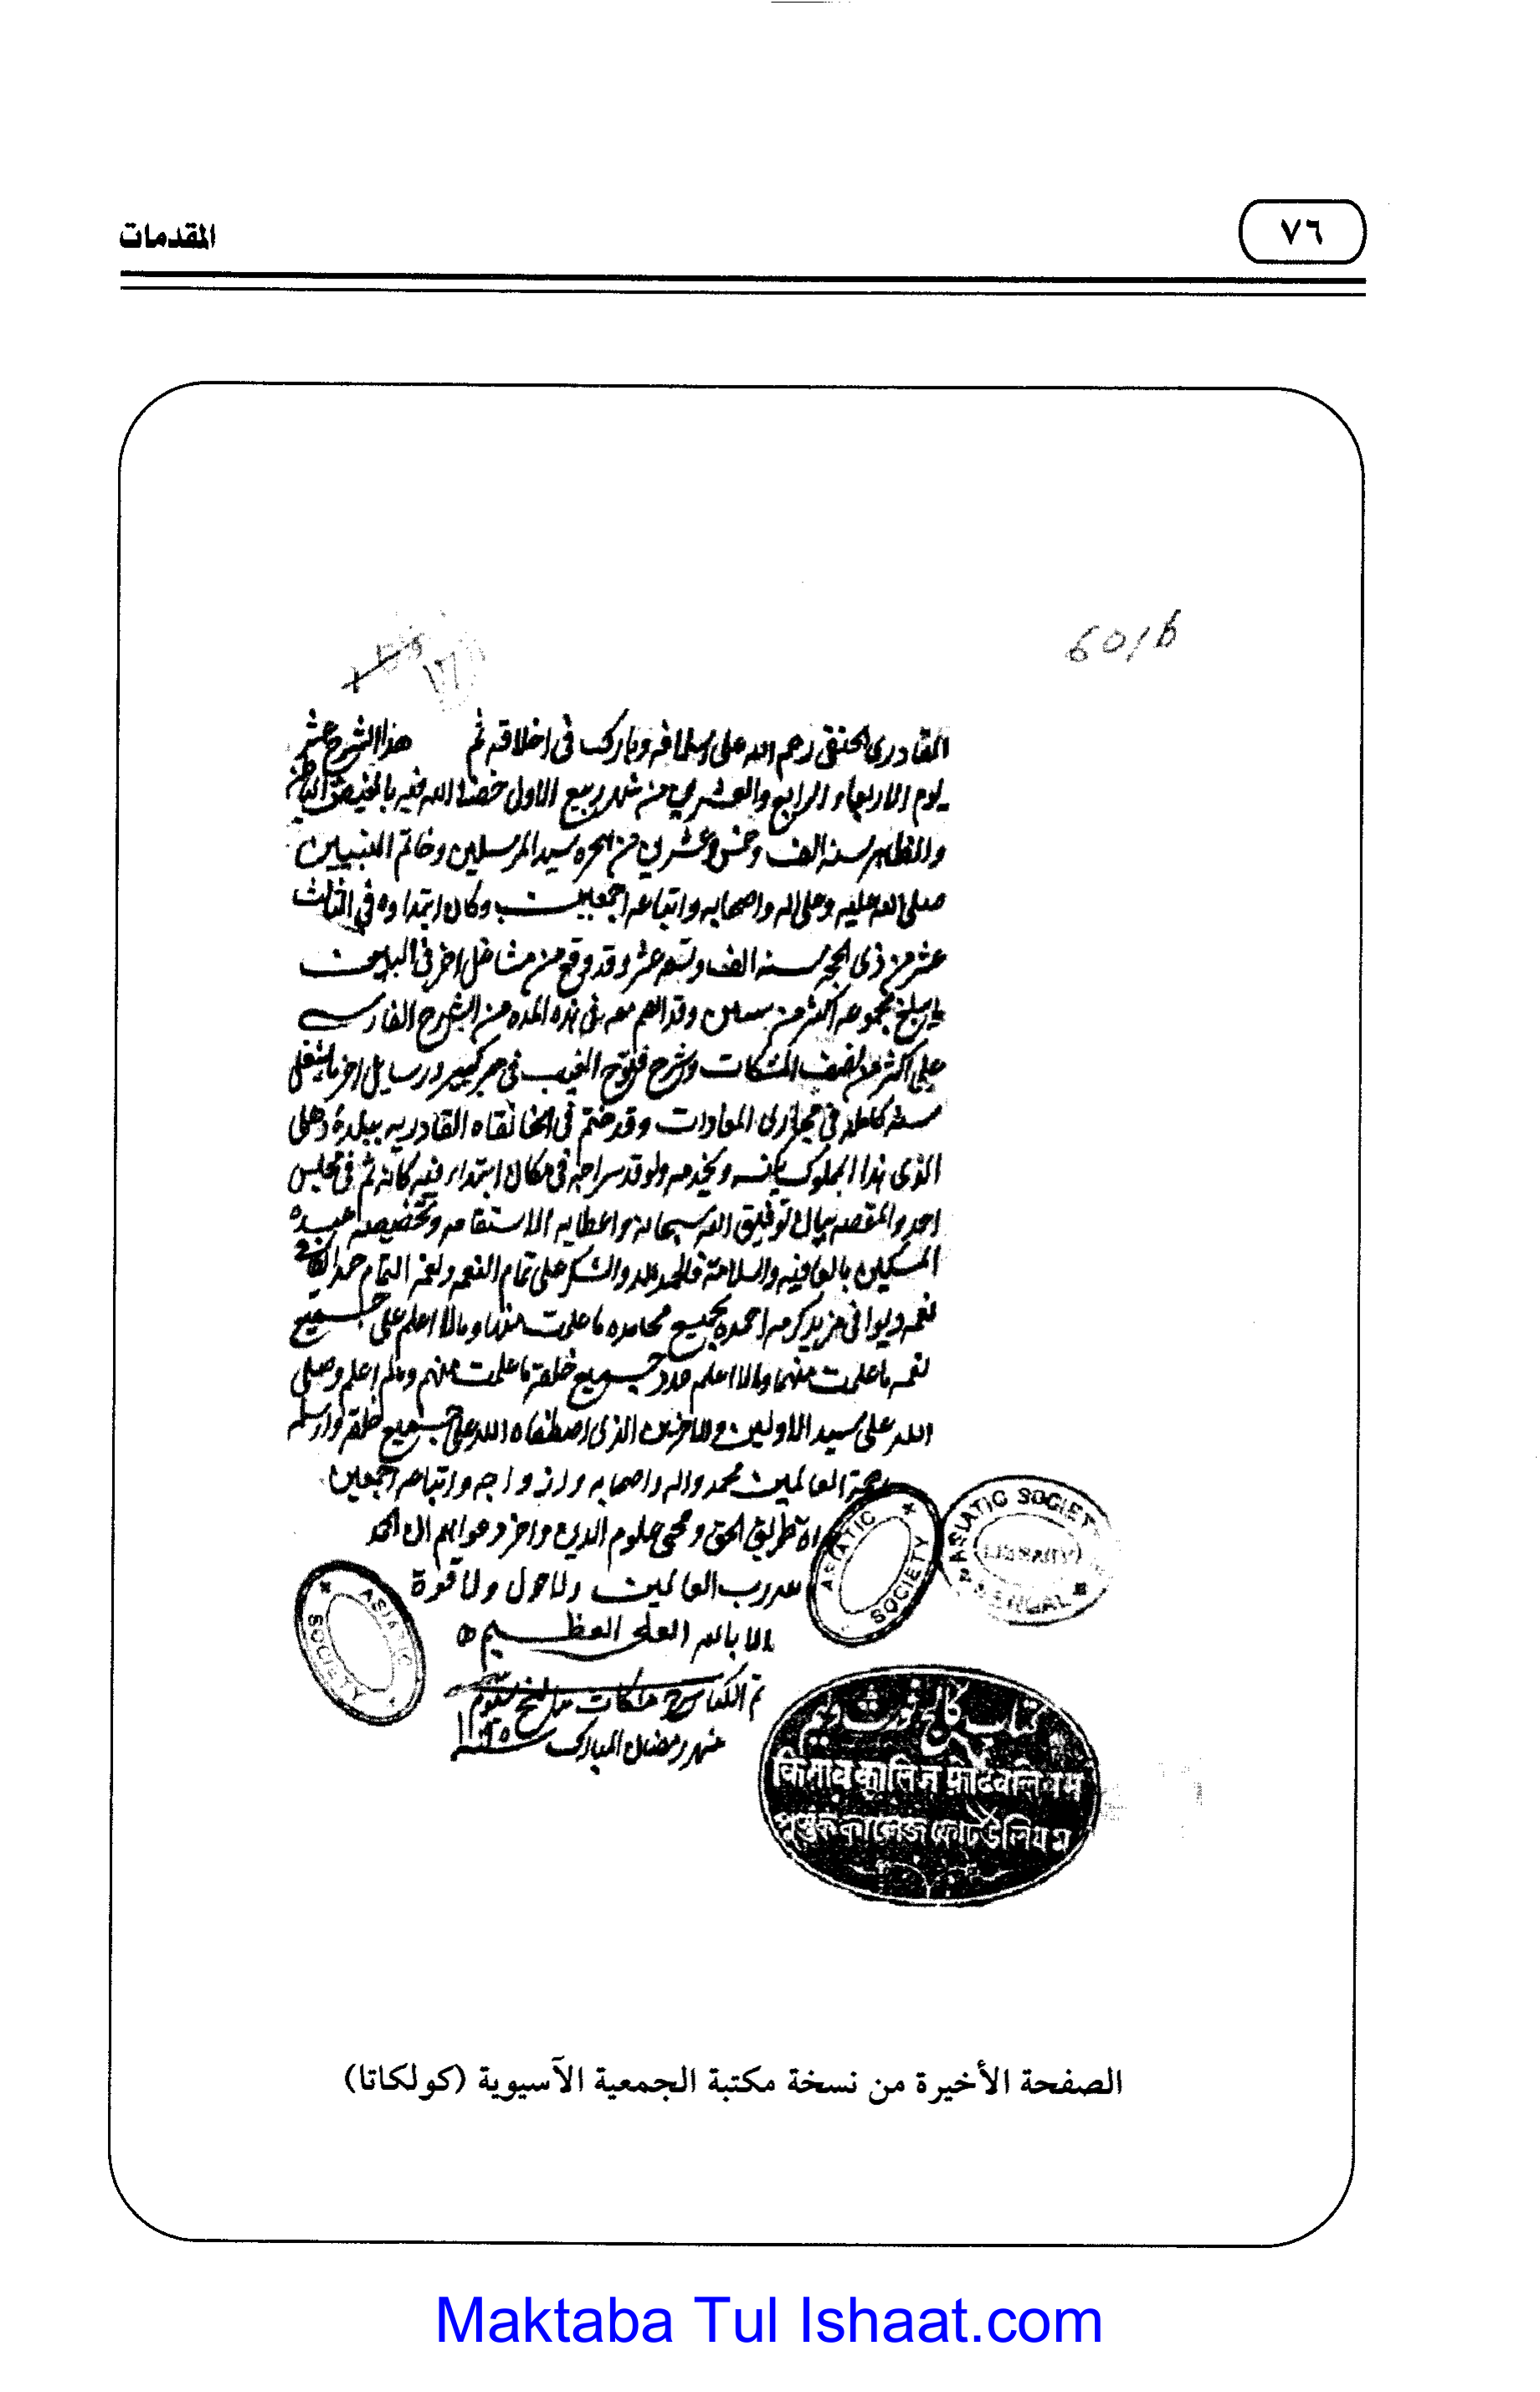 ٧٦
المقدمات
601/b
القادري الحنفي رحم الله على اسلافه وبارك في اخلافه تم هذا الشرح عشر
يوم الاربعاء الرابع والعشرين من شهر ربيع الاول خصنا الله فيه بالفيض الباطن
والظاهر سنه الف وخمس وعشرين من هجره سيد المرسلين وخاتم النبيين
صلى الله عليه وعلى اله واصحابه واتباعه اجمعين وكان ابتداوه في الثالث
عشر من ذى الحجه سنه الف وتسعه عشر وقد وقع من مشاغل اخر في البين
ما يبلغ مجموعه اكثر من سنتين وقد انضم معه في هذه المده من الشرح الفارسي
على اكثر من نصف المشكات وشرح فتوح الغيب في حر كبير ورسايل اخر ما يشغل
سنه كامله في مجارى العادات وقد ختم في الخانقاه القادريه ببلدة دهلى
الذى هذا المملوك يكنسه ويخدمه ويوقد سراجه في مكان ابتداء فيه كانه تم في مجلس
احد والمقصد بيان توفيق الله سبحانه واعطايه الاستقامه وتخصيصه عبده
المسكين بالعافيه والسلامة فالحمد لله والشكر على تمام النعم ونعمة التمام حمدا يكافي
نعمه ويوافي مزيد كرمه احمده بجميع محامده ما علمت منها وما لا اعلم على جميع
نعمه ما علمت منها وما لا اعلم عدد جميع خلقه ما علمت منهم وما لم اعلم وصلى
الله على سيد الاولين والاخرين الذى اصطفاه الله على جميع خلقه وارسله
رحمة العالمين محمد واله واصحابه وازواجه واتباعه اجمعين
طريق الحق ومحيي علوم الدين واخر دعواهم ان الحمد
لله رب العالمين ولا حول ولا قوة
الا بالله العلى العظيم
تم الكتاب شرح مشكات بتاريخ سيوم
شهر رمضان المبارك سنه
ASIATIC SOCIETY
ASIATIC SOCIETY
LIBRARY
BENGAL
ASIATIC SOCIETY
الصفحة الأخيرة من نسخة مكتبة الجمعية الآسيوية (كولكاتا)
Maktaba Tul Ishaat.com